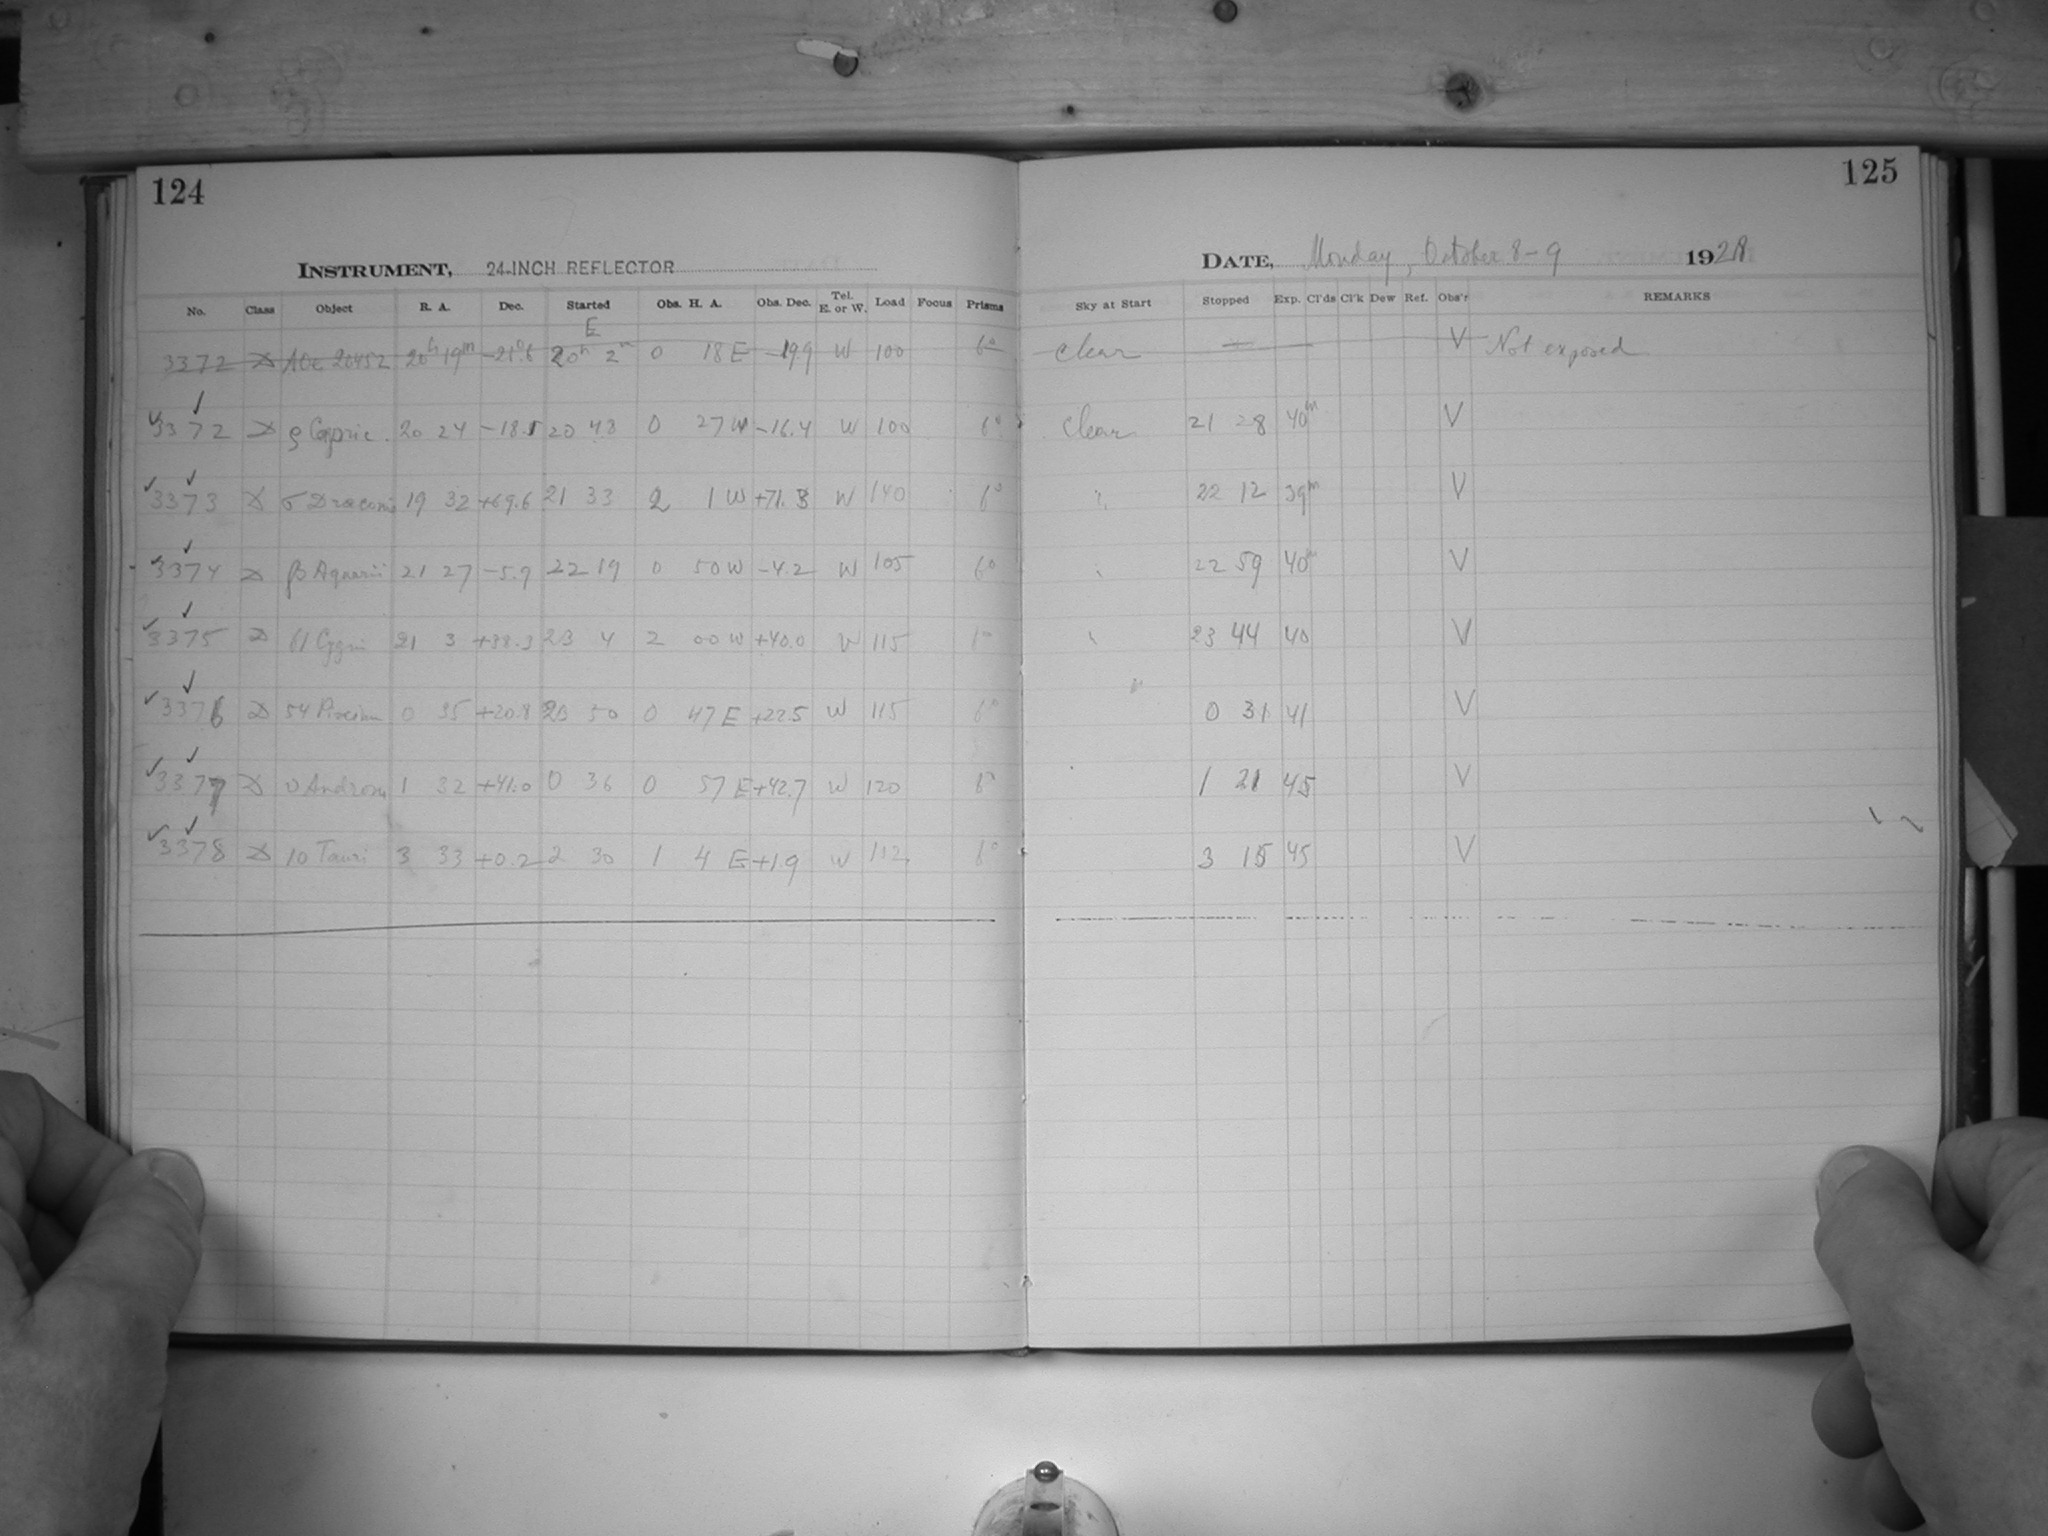 124
INSTRUMENT, 24-INCH REFLECTOR
No. Class Object R. A. Dec. Started Obs. H. A. Obs. Dec. Tel. E. or W. Load Focus Prisms
E
3372 20h 19m -21°.6 20h 2m 0 18 E -19.9 W 100 6°
3372 ρ Capric. 20 24 -18.1 20 48 0 27 W -16.4 W 100 6°
3373 σ Draconis 19 32 +69.6 21 33 2 1 W +71.3 W 140 6°
3374 β Aquarii 21 27 -5.9 22 19 0 50 W -4.2 W 105 6°
3375 61 Cygni 21 3 +38.3 23 4 2 00 W +40.0 W 115 6°
3376 54 Piscium 0 35 +20.8 23 50 0 47 E +22.5 W 115 6°
3377 υ Androm 1 32 +41.0 0 36 0 57 E +42.7 W 120 6°
3378 10 Tauri 3 33 +0.2 2 30 1 4 E +1.9 W 112 6°
125
DATE, Monday, October 8-9 1928
Sky at Start Stopped Exp. Cl'ds Cl'k Dew Ref. Obs'r REMARKS
clear — V Not exposed
clear 21 28 40m V
" 22 12 39m V
" 22 59 40m V
" 23 44 40 V
" 0 31 41 V
1 21 45 V
3 15 45 V